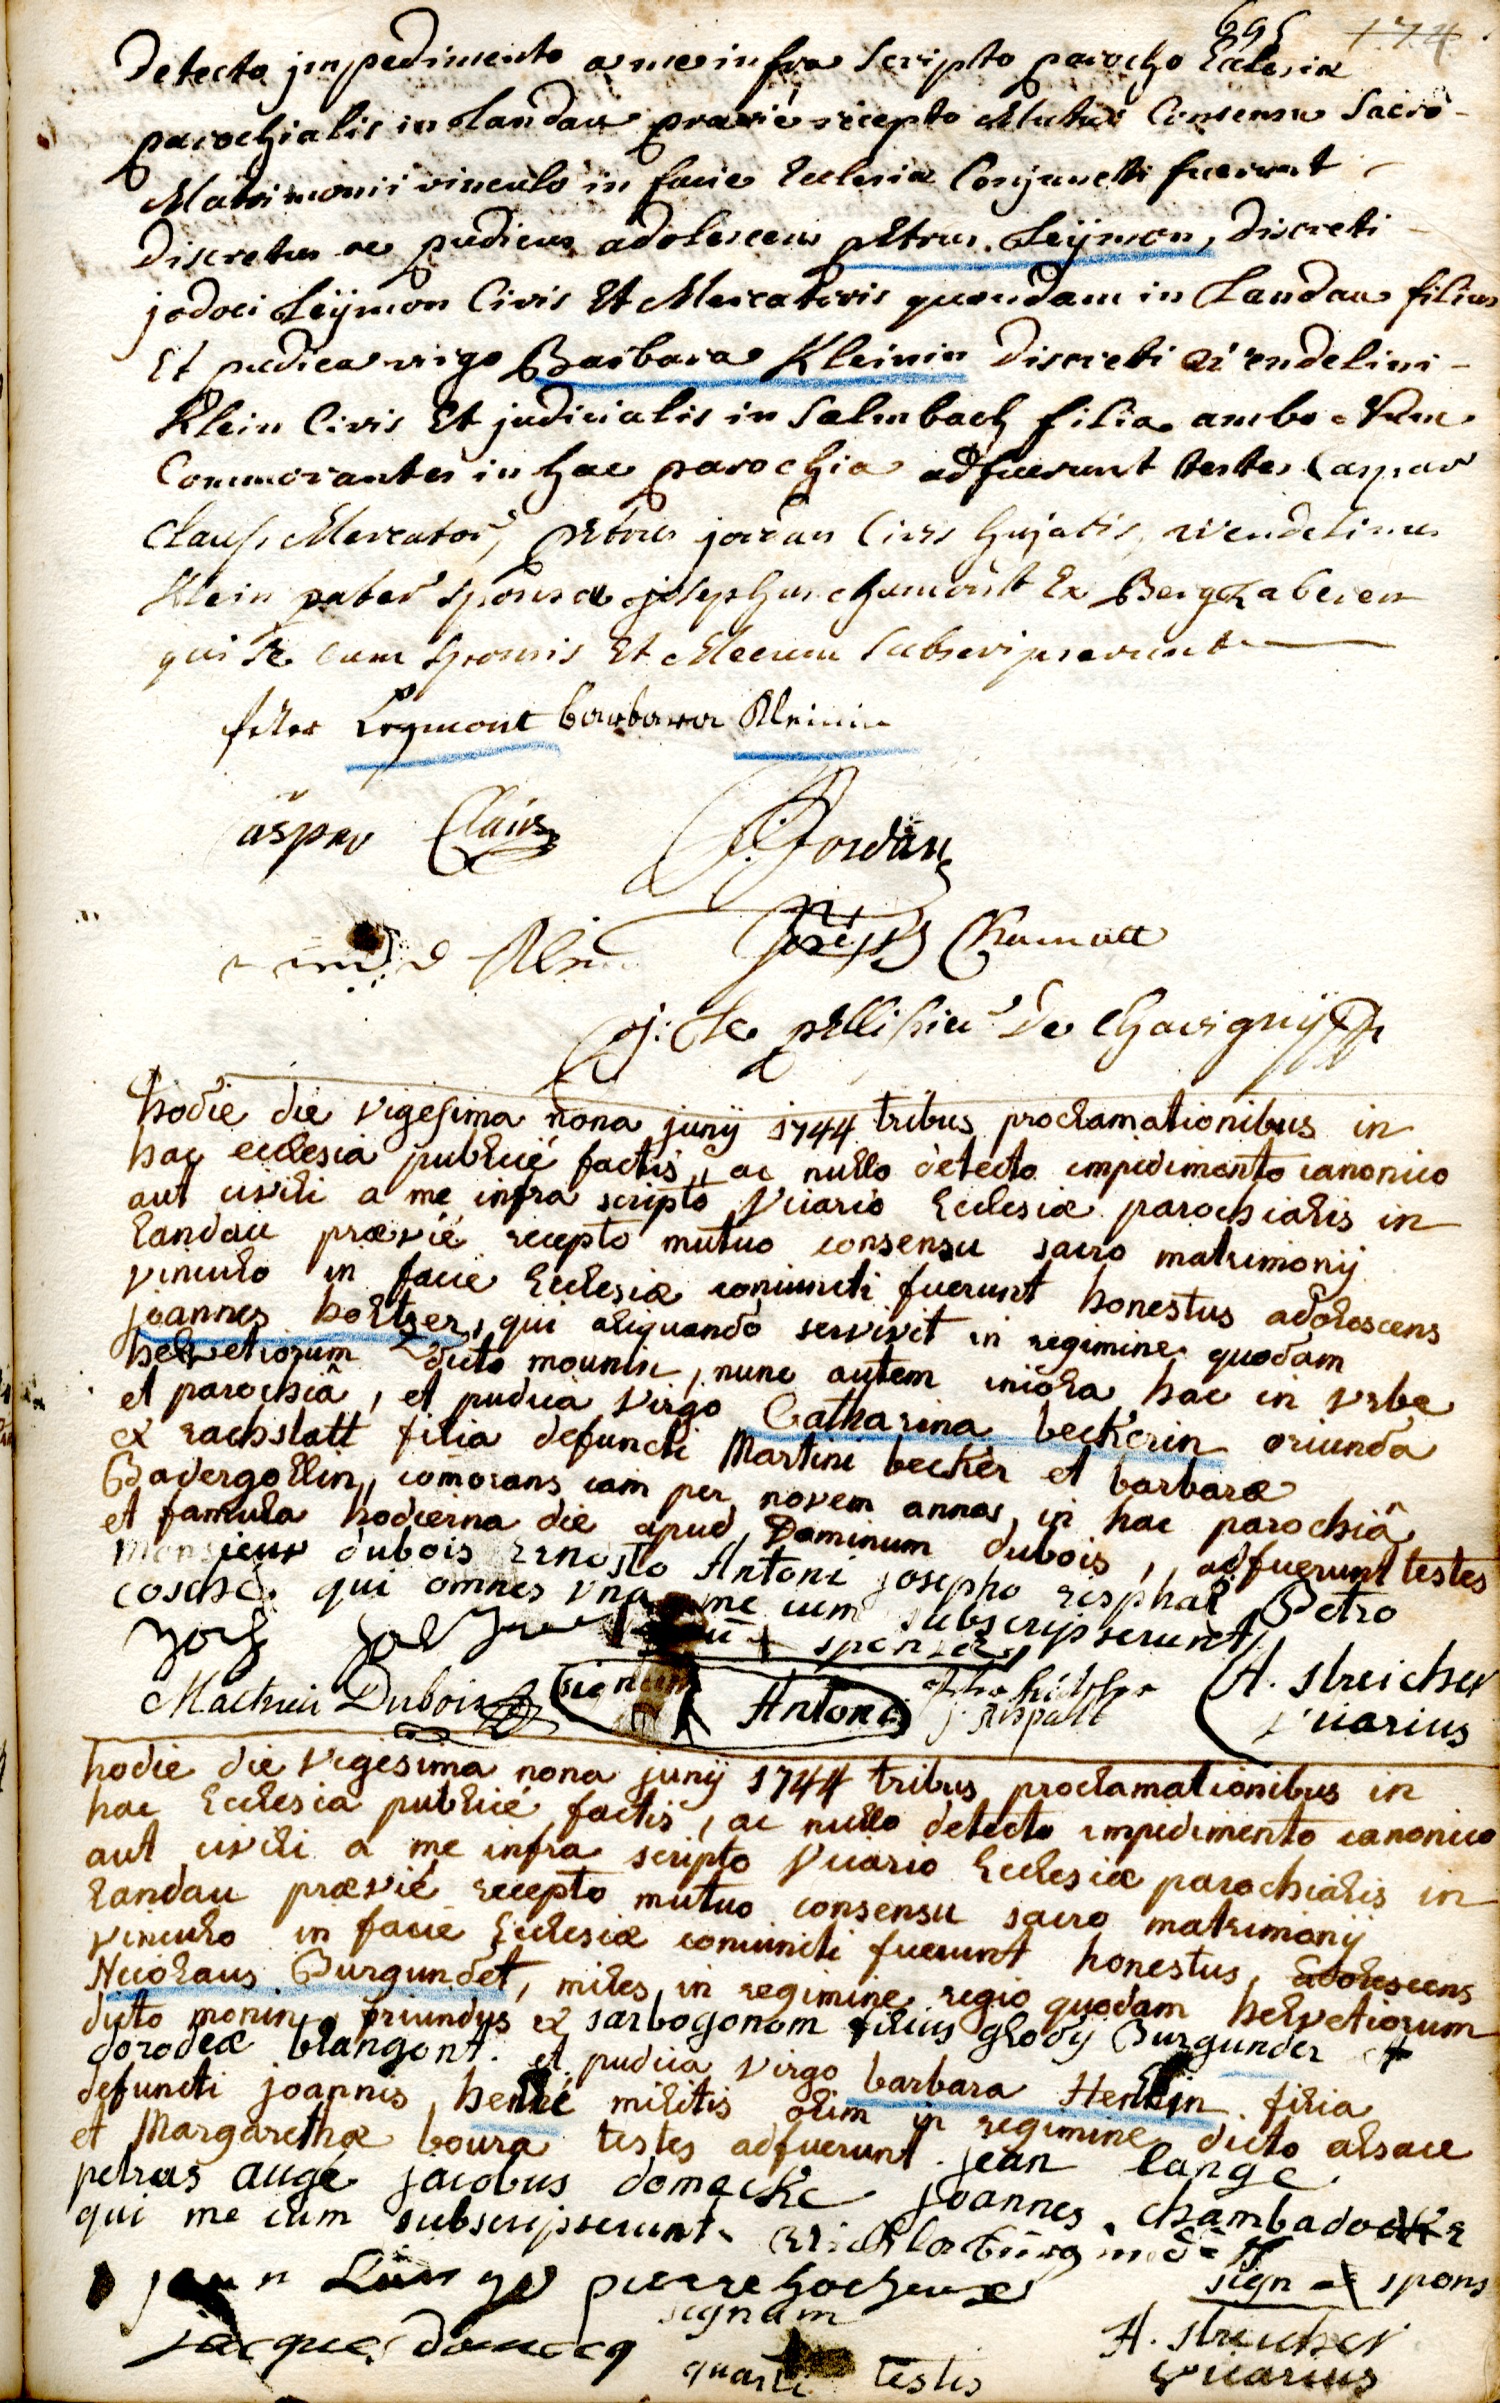 695 174
Detecto jmpedimento a me infra Scripto parocho Ecclesiæ
parochialis in Landau prævie recepto Mutuo Consensu Sacro
Matrimonii vinculo in facie Ecclesiæ Conjuncti fuerunt
Discretus ac pudicus adolescens petrus Leÿmon, discreti
jodoci Leÿmon Civis Et Mercatoris quondam in Landau filius
Et pudica virgo Barbara Kleinin Discreti wendelini
Klein Civis Et judicialis in Salmbach filia ambo
Commorantes in hac parochia adfuerunt testes Caspar
Claus Mercator, petrus jordan Civis hujatis, wendelinus
Klein pater sponsæ josephus chamott Ex Bergzaberen
qui se cum sponsis Et Mecum Subscripserunt
peter Leymont barbara Kleinin
Casper Claus P. Jordan
Klein Joseph Chamott
j: Le pellissier De Chavignÿ
hodie die vigesima nona junij 1744 tribus proclamationibus in
hac ecclesia publicé factis, ac nullo detecto impedimento canonico
aut civili a me infra scripto Vicario Ecclesiæ parochialis in
Landau prævié recepto mutuo consensu sacro matrimonij
vinculo in facie Ecclesiæ coniuncti fuerunt honestus adolescens
joannes holtser, qui aliquando servivit in regimine quodam
helvetiorum dicto mounin, nunc autem incola hac in vrbe
et parochiâ, et pudica virgo Catharina beckerin oriunda
ex rachstatt filia defuncti Martini becker et barbaræ
Badergollin, comorans iam per novem annos in hac parochiâ
et famula hodierna die apud Dominum dubois, adfuerunt testes
Monsieur dubois Antoni josepho resphal Petro
qui omnes vna me cum subscripserunt
sponsæ
Mathieu Dubois signum Antoni j. Rispall A. streicher
vicarius
hodie die Vigesima nona junij 1744 tribus proclamationibus in
hac Ecclesia publicé factis, ac nullo detecto impedimento canonico
aut civili a me infra scripto Vicario Ecclesiæ parochialis in
Landau prævié recepto mutuo consensu sacro matrimonij
vinculo in facie Ecclesiæ coniuncti fuerunt honestus, adolescens
Nicolaus Burgundet, miles in regimine regio quodam helvetiorum
dicto monin oriundus ex sarbogonom filius glodij Burgunder et
dorodeæ blangont. et pudica virgo barbara Henkin filia
defuncti joannis henke militis olim in regimine dicto alsace
et Margarethæ boura testes adfuerunt jean lange
petrus augé jacobus domecke joannes chambadocke
qui me cum subscripserunt
jean Lange pierre sign spons
signum
jacques domecq A. streicher
quarti testis vicarius